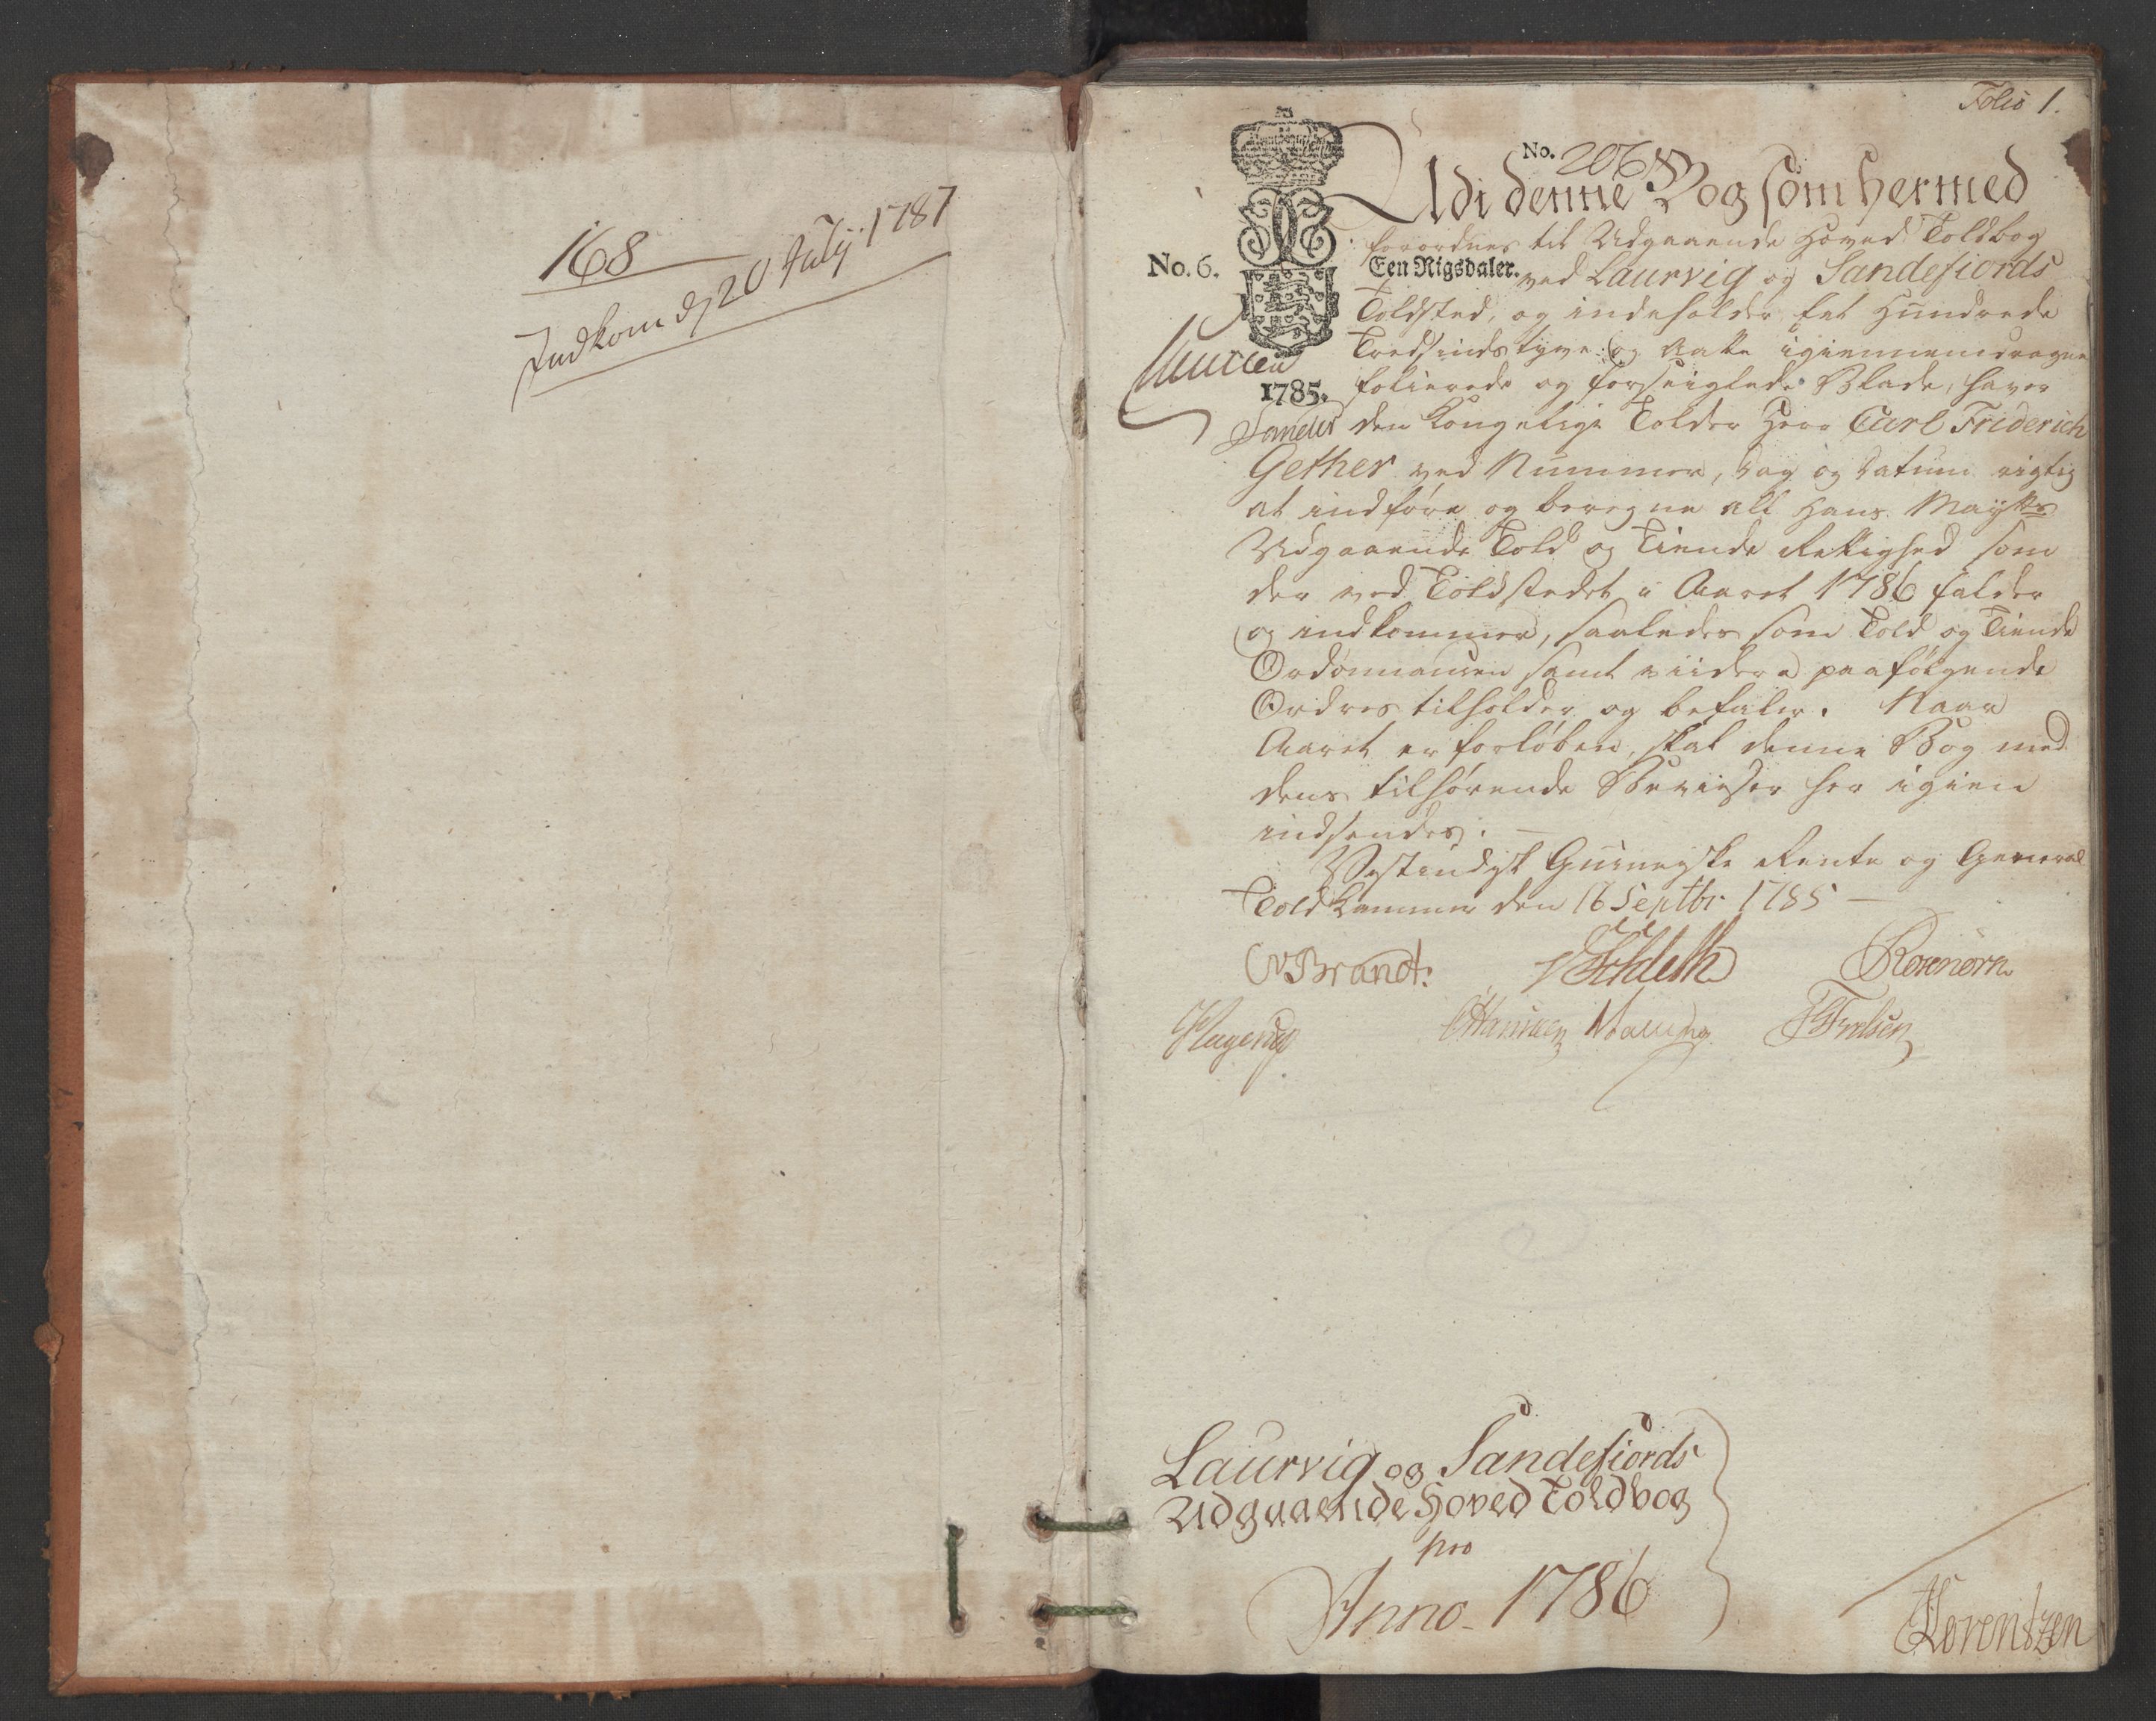 168
Indkom d 20 July 1787
Folio 1.
No. 206
Udi denne Bog som hermed
forordnes til Udgaaende Hoved Toldbog
No. 6.
Een Rigsdaler.
ved Laurvig og Sandefiords
Toldsted, og indeholder Eet Hundrede
Tredsindstyve og Aatte igiennemdragne
1785.
folierede og forseiglede Blade, haver
den Kongelige Tolder Herr Carl Friderich
Gether ved Nummer, Dag og Datum rigtig
at indføre og beregne all Hans Mayts
Udgaaende Told og Tiende Rettighed som
der ved Toldstedet i Aaret 1786 falder
og indkommer, saaledes som Told og Tiende
Ordonnancen samt viidere paafølgende
Ordres tilholder og befaler. Naar
Aaret er forløben, skal denne Bog med
dens tilhørende Beviiser her igien
indsendes.
Vestindisk Guineiske Rente og General
Toldkammer den 16 Septbr 1785
Brandt.
Rosenørn
Hagerup
Hansen Malling
Laurvig og Sandefiords
Udgaaende Hoved Toldbog
pro
Anno 1786
Lorentzen